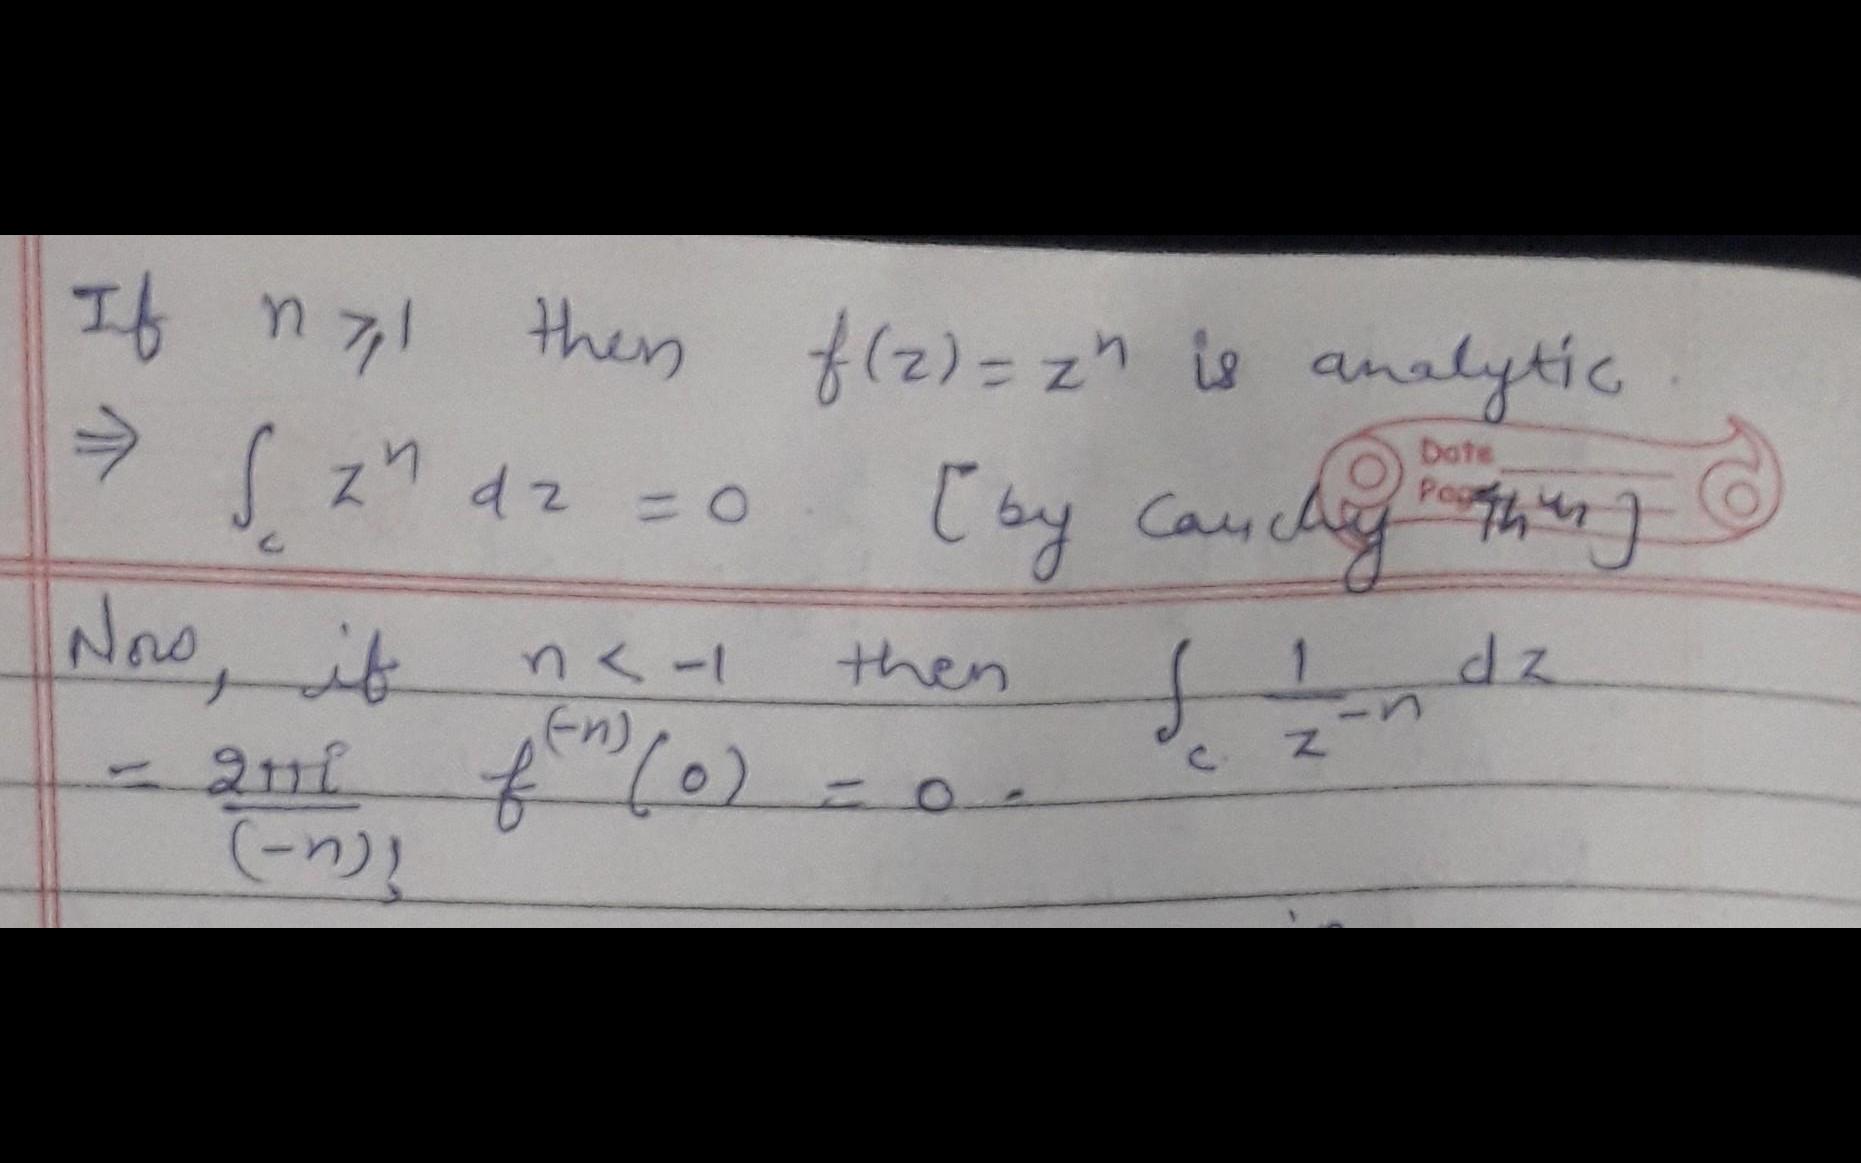 If n ⩾ 1 then f(z) = zⁿ is analytic.
⇒ ∫_c zⁿ dz = 0. [by Cauchy thm]
Date
Page
Now, if n < -1 then ∫_c 1/z^{-n} dz
= 2πi/(-n)! f^{(-n)}(0) = 0.